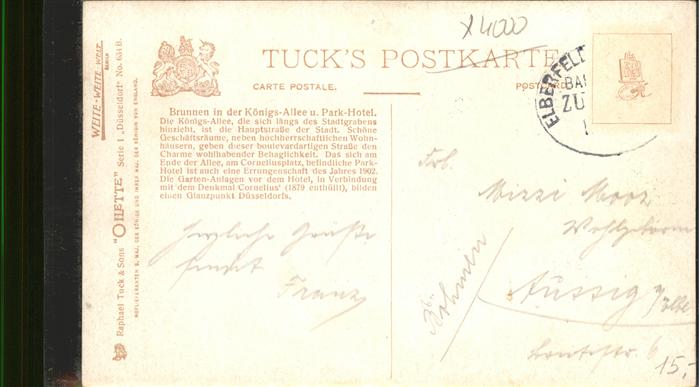 x 4000
TUCK'S POSTKARTE
CARTE POSTALE.
POSTCARD
ELBERFELD
BA
ZU
WEITE-WEITE WELT
BERLIN
Raphael Tuck & Sons "OILETTE" Serie I „Düsseldorf" No. 634B.
HOFLIEFERANTEN S. MAJ. DES KÖNIGS UND IHRER MAJ. DER KÖNIGIN VON ENGLAND.
Brunnen in der Königs-Allee u. Park-Hotel.
Die Königs-Allee, die sich längs des Stadtgrabens
hinzieht, ist die Hauptstraße der Stadt. Schöne
Geschäftsräume, neben hochherrschaftlichen Wohn-
häusern, geben dieser boulevardartigen Straße den
Charme wohlhabender Behaglichkeit. Das sich am
Ende der Allee, am Corneliusplatz, befindliche Park-
Hotel ist auch eine Errungenschaft des Jahres 1902.
Die Garten-Anlagen vor dem Hotel, in Verbindung
mit dem Denkmal Cornelius' (1879 enthüllt), bilden
einen Glanzpunkt Düsseldorfs.
Herzliche Grüße
sendet
Franz
Frl.
Mizzi Mooz
Wohlgeboren
Aussig a/Elbe
Böhmen
6
15,-